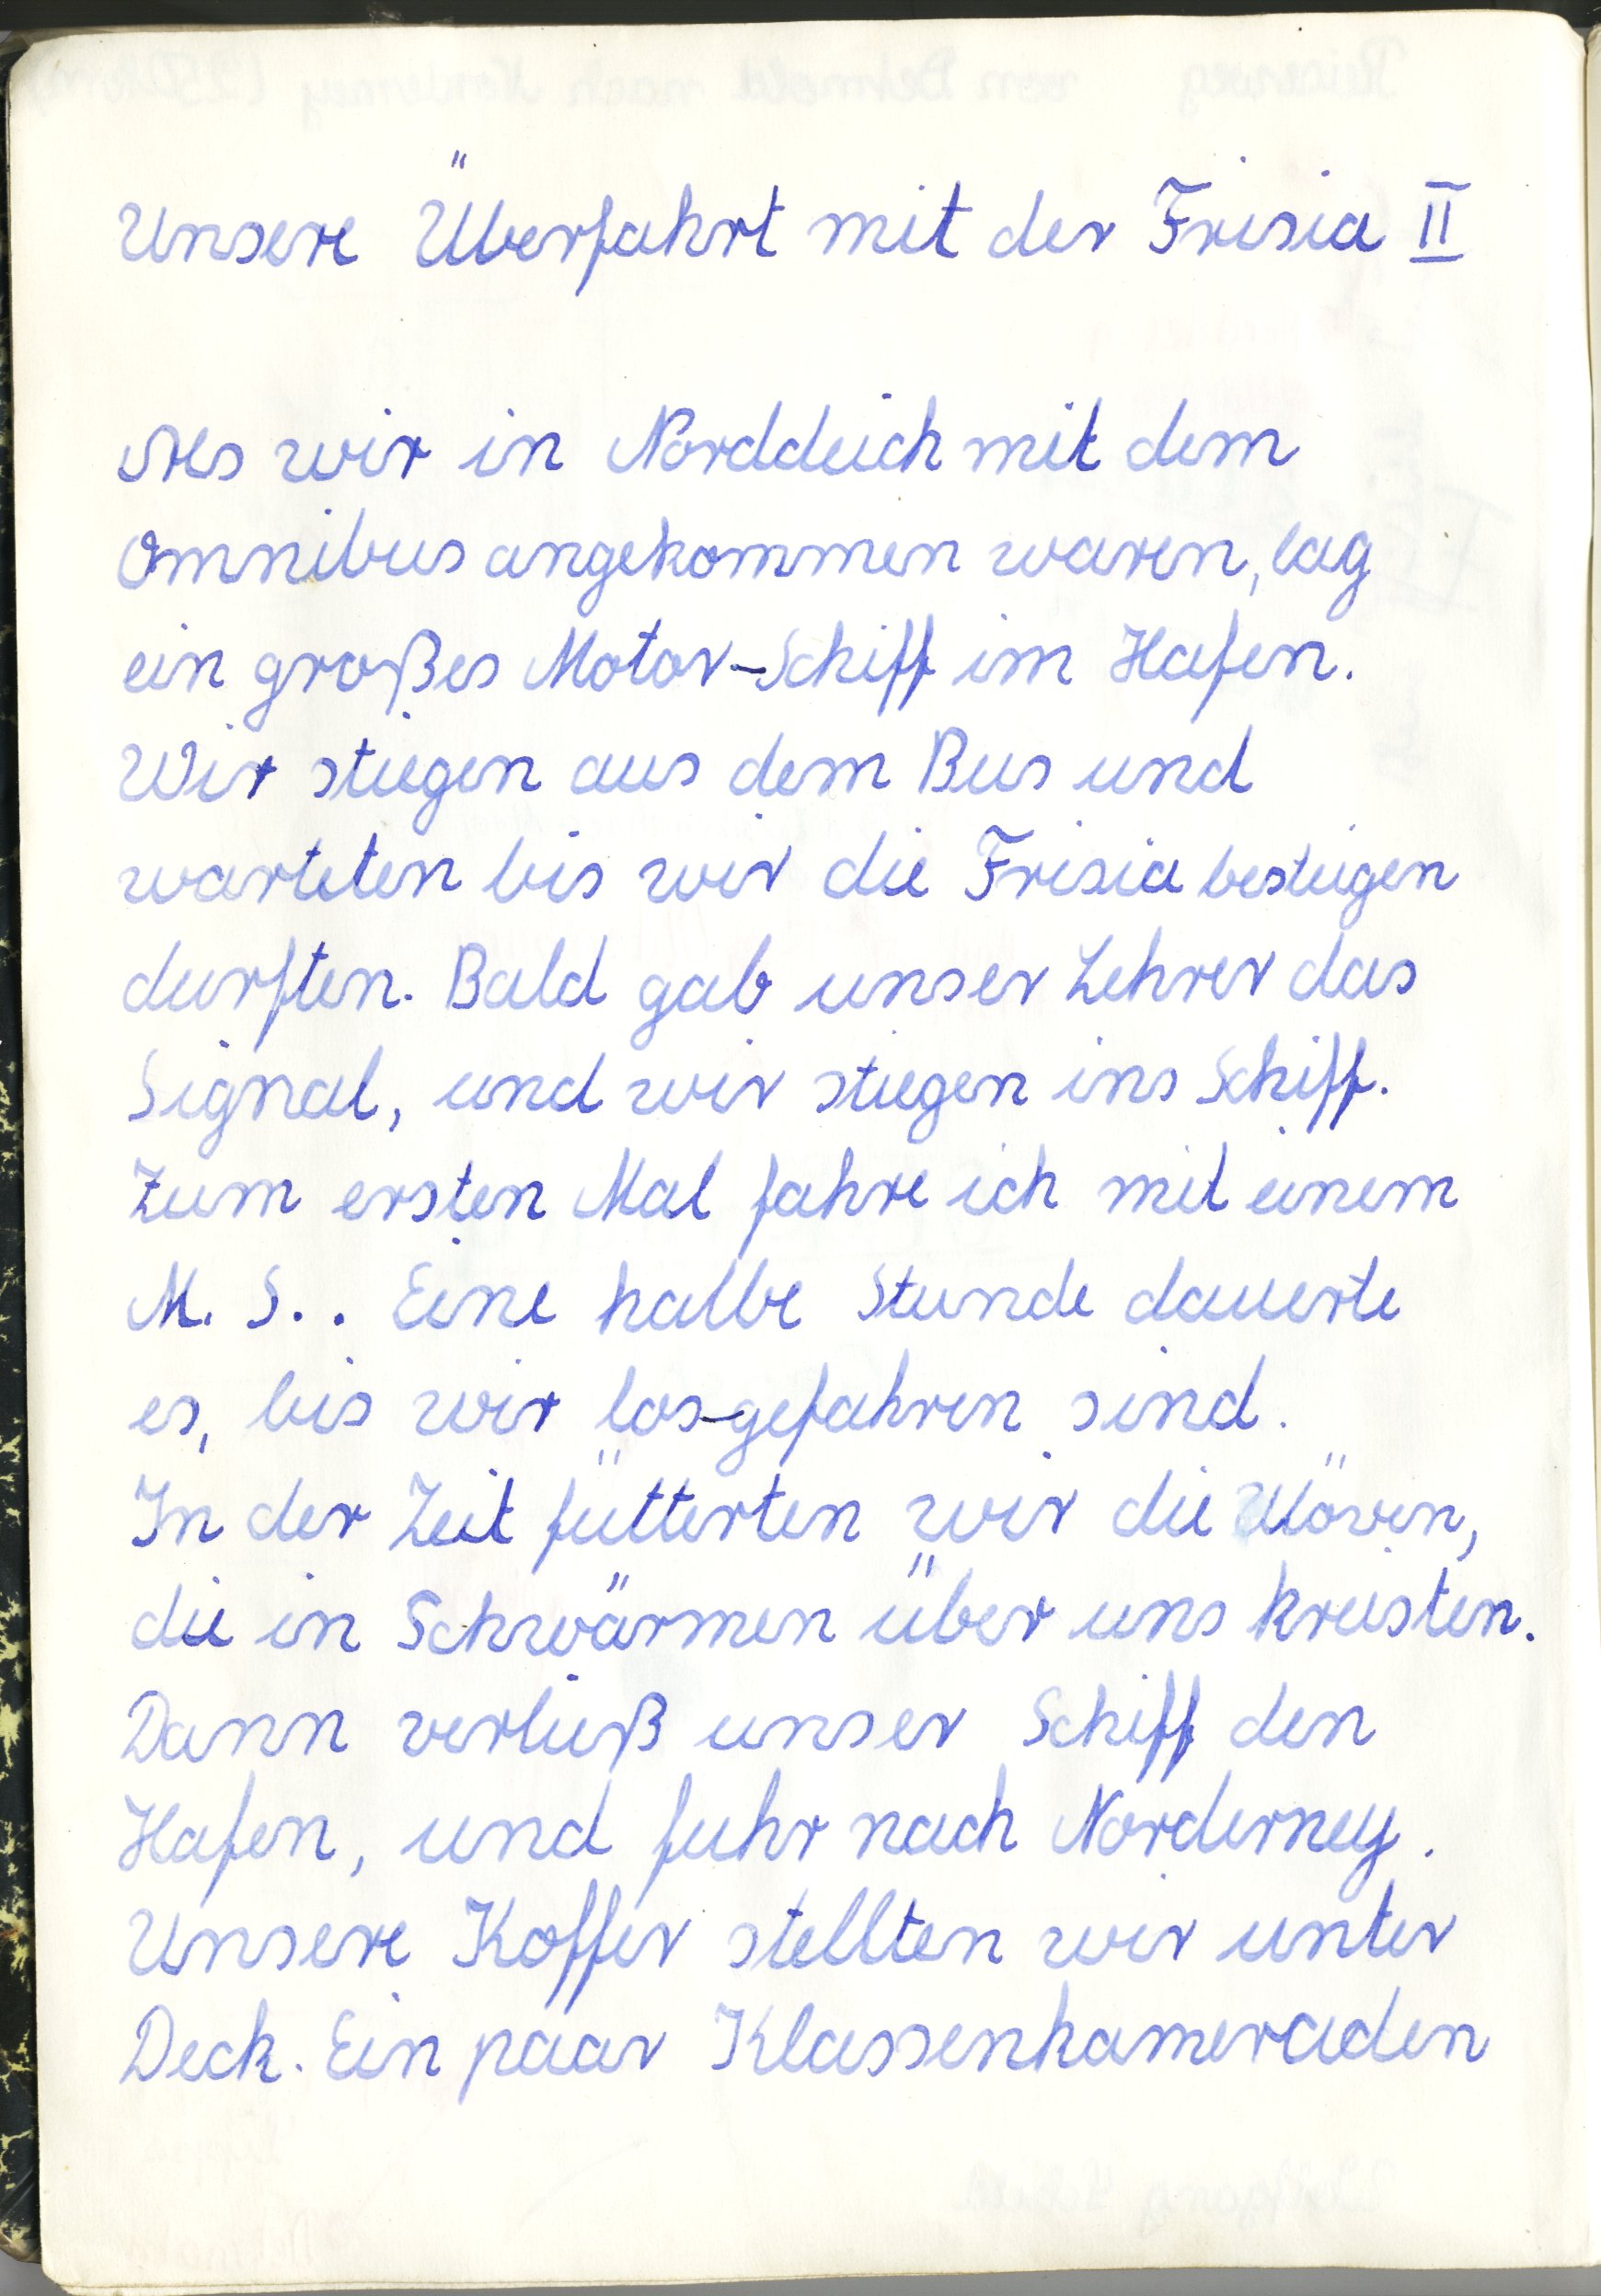 Unsere Überfahrt mit der Frisia II
Als wir in Norddeich mit dem
Omnibus angekommen waren, lag
ein großes Motor-Schiff im Hafen.
Wir stiegen aus dem Bus und
warteten bis wir die Frisia besteigen
durften. Bald gab unser Lehrer das
Signal, und wir stiegen ins Schiff.
Zum ersten Mal fahre ich mit einem
M. S.. Eine halbe Stunde dauerte
es, bis wir los-gefahren sind.
In der Zeit fütterten wir die Möven,
die in Schwärmen über uns kreisten.
Dann verließ unser Schiff den
Hafen, und fuhr nach Norderney.
Unsere Koffer stellten wir unter
Deck. Ein paar Klassenkameraden